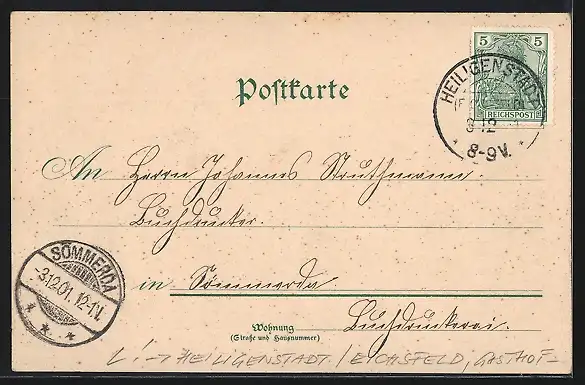 5 5
REICHSPOST
HEILIGENSTADT
3 12
8-9V.
Postkarte
An Herrn Johannes Struthmann.
Buchdrucker.
SÖMMERDA
-3.12.01. 12-1V.
in Sömmerda
Wohnung
(Straße und Hausnummer)
Buchdruckerei.
HEILIGENSTADT / EICHSFELD, GASTHOF-